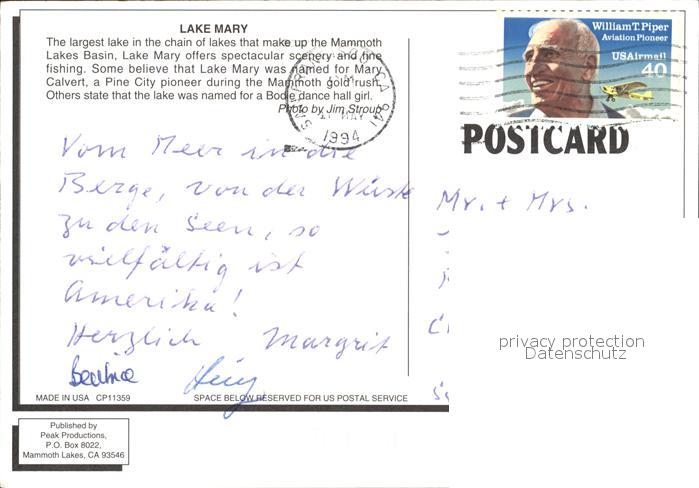 LAKE MARY
The largest lake in the chain of lakes that make up the Mammoth
Lakes Basin, Lake Mary offers spectacular scenery and fine
fishing. Some believe that Lake Mary was named for Mary
Calvert, a Pine City pioneer during the Mammoth gold rush.
Others state that the lake was named for a Bodie dance hall girl.
Photo by Jim Stroup
MAY
1994
William T. Piper
Aviation Pioneer
USAirmail
40
POSTCARD
Vom Meer in die
Berge, von der Wüste
zu den Seen, so
vielfältig ist
Amerika!
Herzlich Margrit
Beatrice
Mr. + Mrs.
privacy protection
Datenschutz
MADE IN USA CP11359
SPACE BELOW RESERVED FOR US POSTAL SERVICE
Published by
Peak Productions,
P.O. Box 8022,
Mammoth Lakes, CA 93546